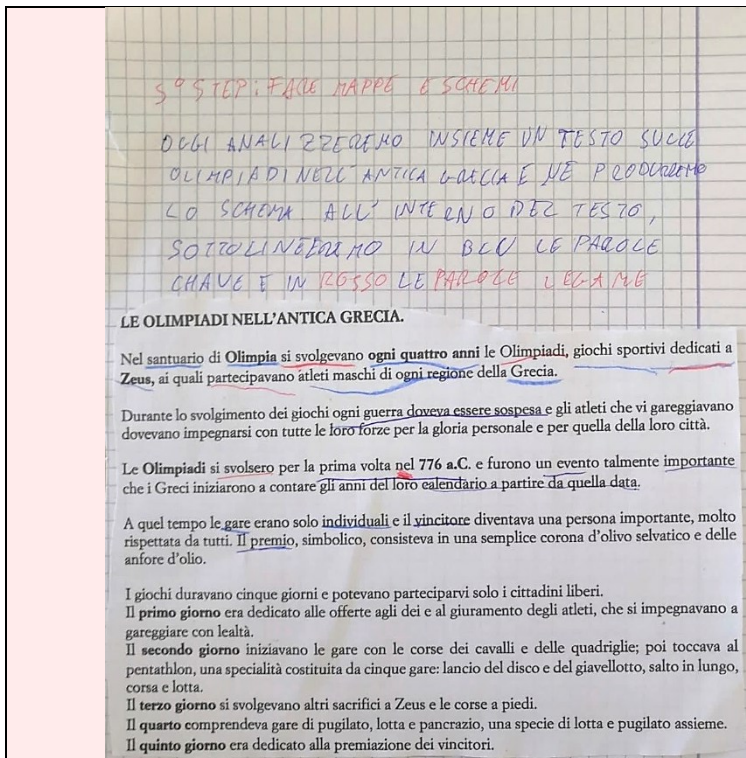 5° STEP: FARE MAPPE E SCHEMI
OGGI ANALIZZEREMO INSIEME UN TESTO SULLE
OLIMPIADI NELL'ANTICA GRECIA E NE PRODURREMO
LO SCHEMA. ALL'INTERNO DEL TESTO,
SOTTOLINEEREMO IN BLU LE PAROLE
CHIAVE E IN ROSSO LE PAROLE LEGAME
LE OLIMPIADI NELL'ANTICA GRECIA.
Nel santuario di Olimpia si svolgevano ogni quattro anni le Olimpiadi, giochi sportivi dedicati a
Zeus, ai quali partecipavano atleti maschi di ogni regione della Grecia.
Durante lo svolgimento dei giochi ogni guerra doveva essere sospesa e gli atleti che vi gareggiavano
dovevano impegnarsi con tutte le loro forze per la gloria personale e per quella della loro città.
Le Olimpiadi si svolsero per la prima volta nel 776 a.C. e furono un evento talmente importante
che i Greci iniziarono a contare gli anni del loro calendario a partire da quella data.
A quel tempo le gare erano solo individuali e il vincitore diventava una persona importante, molto
rispettata da tutti. Il premio, simbolico, consisteva in una semplice corona d'olivo selvatico e delle
anfore d'olio.
I giochi duravano cinque giorni e potevano parteciparvi solo i cittadini liberi.
Il primo giorno era dedicato alle offerte agli dei e al giuramento degli atleti, che si impegnavano a
gareggiare con lealtà.
Il secondo giorno iniziavano le gare con le corse dei cavalli e delle quadriglie; poi toccava al
pentathlon, una specialità costituita da cinque gare: lancio del disco e del giavellotto, salto in lungo,
corsa e lotta.
Il terzo giorno si svolgevano altri sacrifici a Zeus e le corse a piedi.
Il quarto comprendeva gare di pugilato, lotta e pancrazio, una specie di lotta e pugilato assieme.
Il quinto giorno era dedicato alla premiazione dei vincitori.